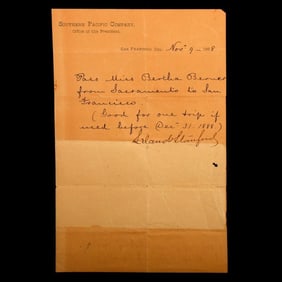 SOUTHERN PACIFIC COMPANY.
Office of the President.
SAN FRANCISCO, CAL. Nov 9 1888
Pass Miss Bertha Berner
from Sacramento to San
Francisco.
(Good for one trip if
used before Dec 31. 1888)
Leland Stanford